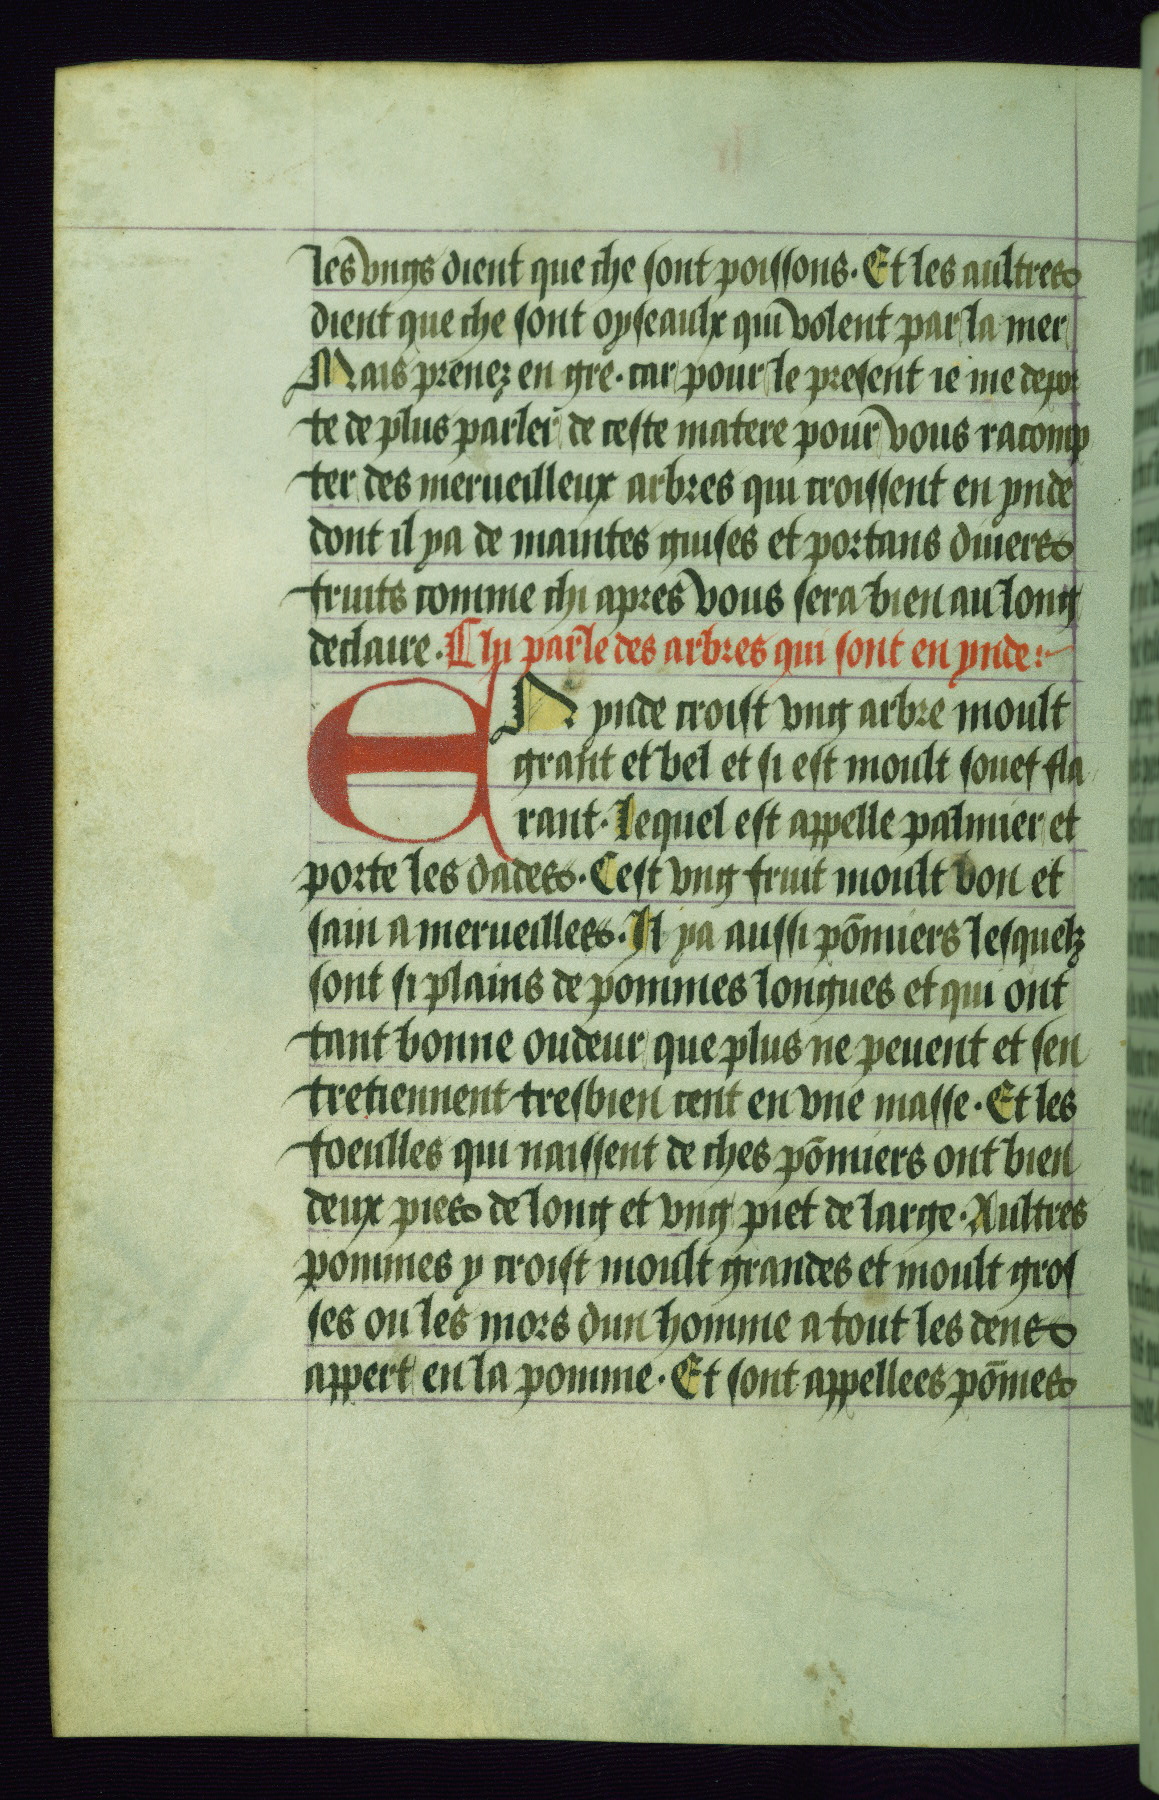 les vngs dient que che sont poissons. Et les aultres
dient que che sont oyseaulx qui volent par la mer
Mais prenez en gre. car pour le present ie me depor
te de plus parler de ceste matere pour vous racomp
ter des merueilleux arbres qui croissent en ynde
dont il ya de maintes guises et portans diuers
fruits comme chi apres vous sera bien au long
declaire. Chi parle des arbres qui sont en ynde:
EN ynde croist vng arbre moult
grant et bel et si est moult souef fla
rant. Lequel est appelle palmier et
porte les dades. Cest vng fruit moult bon et
sain a merueilles. Il ya aussi põmiers lesquelz
sont si plains de pommes longues et qui ont
tant bonne oudeur que plus ne peuent et sen
tretiennent tresbien cent en vne masse. Et les
foeulles qui naissent de ches põmiers ont bien
deux pies de long et vng piet de large. Aultres
pommes y croist moult grandes et moult gros
ses ou les mors dun homme a tout les dens
appert en la pomme. Et sont appellees põmes